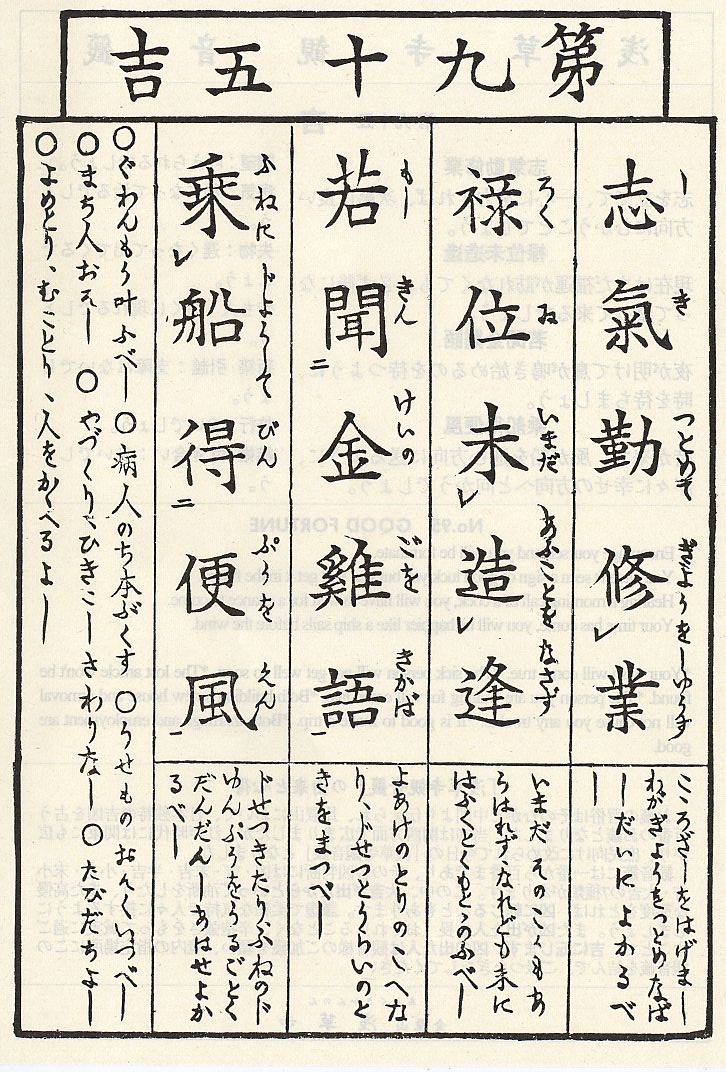 第九十五吉
し き つとめて ぎようをしゆす
志氣勤修レ業
こころざしをはげまし
わがぎようをつとめなば
しだいによかるべ
し
ろく ゐ いまだ あふことをなさず
祿位未レ造レ逢
いまだ そのこくもあ
らはれず されども末に
はふくとくもとゝのふべし
もし きん けいの ごを きかば
若聞二金雞語一
よあけのとりのこへな
り、せつとくらいのと
きをまつべし
ふねに じようして びん ぷうを えん
乗レ船得二便風一
じせつきたりふねのじ
ゆんぷうをうるごとく
だんだん しあはせよか
るべし
○ぐわんもう叶ふべし ○病人のち本ぶくす ○うせものおそくいづべし
○まち人おそし ○やづくり、ひきこしさわりなし ○たびだちよし
○よめとり、むことり、人をかゝへるよし